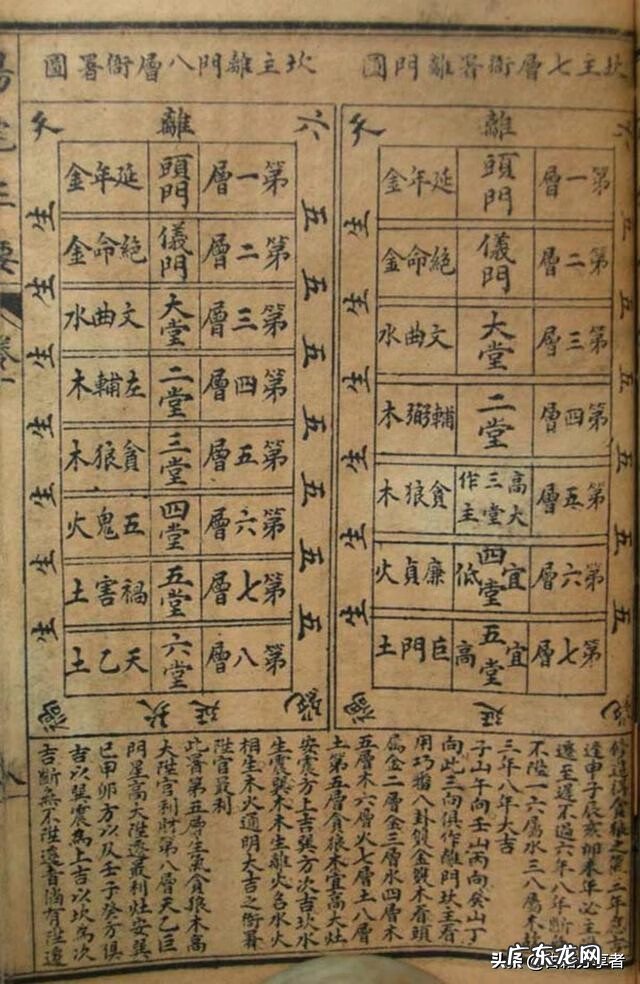 陽宅三要 卷一
坎主七層衙署離門圖
六 離 天
五 五 五 五 五 五 五
生 生 生 生 生 生
第一層 頭門 延年金
第二層 儀門 絕命金
第三層 大堂 文曲水
第四層 二堂 輔弼木
第五層 高大三堂作主 貪狼木
第六層 宜四堂低 廉貞火
第七層 宜五堂高 巨門土
延 禍
坎主離門八層衙署圖
六 離 天
五 五 五 五 五 五 五
生 生 生 生 生 生 生
第一層 頭門 延年金
第二層 儀門 絕命金
第三層 大堂 文曲水
第四層 二堂 左輔木
第五層 三堂 貪狼木
第六層 四堂 五鬼火
第七層 五堂 禍害土
第八層 六堂 天乙土
絕 坎延 禍
修造貪狼之二年應吉
逢申子辰亥卯未年必主
遷至遲不過六年八年斷
不陞一六屬水三八屬木故
三年八年大吉
子山午向壬山丙向癸山丁
向此三向俱作離門坎主看
用巧番八卦變金木看頭
屬金二層金三層水四層木
五層木六層火七層土八層
土第五層貪狼木宜高大灶
安震方上吉巽方次吉坎水
生震巽木木生離火名水火
相生木火通明大吉之衙署
陞官最利
此署第五層生氣貪狼木高
大陞官利財第八層天乙巨
門星高大陞遷最利灶安巽
巳甲卯方以及壬子癸方俱
吉以巽震為上吉以坎為次
吉斷無不陞遷者倘有陞遷
广东龙网
头条
分享者